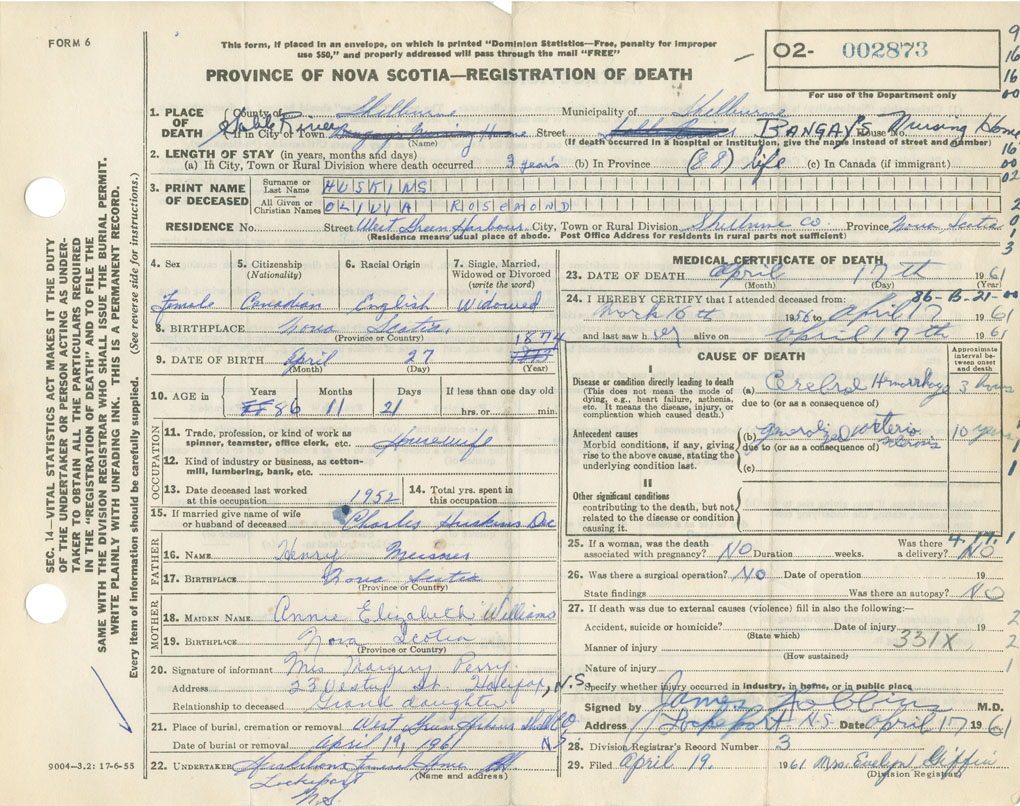 FORM 6
This form, if placed in an envelope, on which is printed "Dominion Statistics—Free, penalty for improper
use $50," and properly addressed will pass through the mail "FREE"
PROVINCE OF NOVA SCOTIA—REGISTRATION OF DEATH
O2- 002873
For use of the Department only
9
16
16
00
SEC. 14—VITAL STATISTICS ACT MAKES IT THE DUTY
OF THE UNDERTAKER OR PERSON ACTING AS UNDER-
TAKER TO OBTAIN ALL THE PARTICULARS REQUIRED
IN THE "REGISTRATION OF DEATH" AND TO FILE THE
SAME WITH THE DIVISION REGISTRAR WHO SHALL ISSUE THE BURIAL PERMIT.
WRITE PLAINLY WITH UNFADING INK. THIS IS A PERMANENT RECORD.
Every item of information should be carefully supplied. (See reverse side for instructions.)
1. PLACE OF DEATH
County of Shelburne Municipality of Shelburne
Sable River In City or Town Street BANGAY'S House No. Nursing Home
(Name) (If death occurred in a hospital or institution, give the name instead of street and number)
2. LENGTH OF STAY (in years, months and days)
(a) In City, Town or Rural Division where death occurred years (b) In Province (88) life (c) In Canada (if immigrant)
3. PRINT NAME OF DECEASED
Surname or Last Name HUSKINS (Year)
All Given or Christian Names OLIVIA ROSEMOND
RESIDENCE No. Street West Green Harbour City, Town or Rural Division Shelburne Co. Province Nova Scotia
(Residence means usual place of abode. Post Office Address for residents in rural parts not sufficient)
4. Sex 5. Citizenship (Nationality) 6. Racial Origin 7. Single, Married, Widowed or Divorced (write the word)
Female Canadian English Widowed
8. BIRTHPLACE Nova Scotia
(Province or Country)
1874
9. DATE OF BIRTH April 27
(Month) (Day) (Year)
10. AGE in Years Months Days If less than one day old
86 11 21 hrs. or min.
OCCUPATION
11. Trade, profession, or kind of work as spinner, teamster, office clerk, etc. Housewife
12. Kind of industry or business, as cotton-mill, lumbering, bank, etc.
13. Date deceased last worked at this occupation 1952 14. Total yrs. spent in this occupation
15. If married give name of wife or husband of deceased Charles Huskins Dec
FATHER
16. NAME Henry Meisner
17. BIRTHPLACE Nova Scotia
(Province or Country)
MOTHER
18. MAIDEN NAME Annie Elizabeth Williams
19. BIRTHPLACE Nova Scotia
(Province or Country)
20. Signature of informant Mrs Margery Perry
Address 23 St Halifax, N.S.
Relationship to deceased Grand daughter
21. Place of burial, cremation or removal West Green Harbour Shel Co N.S.
Date of burial or removal April 19, 1961
22. UNDERTAKER Funeral Home
(Name and address)
Lockeport
N.S.
9004—3.2: 17-6-55
MEDICAL CERTIFICATE OF DEATH
23. DATE OF DEATH April 17th 1961
(Month) (Day)
24. I HEREBY CERTIFY that I attended deceased from: 86-B-21-00
16th 1956 to April 17 1961
and last saw her alive on April 17th 1961
CAUSE OF DEATH
Approximate interval between onset and death
I
Disease or condition directly leading to death
(This does not mean the mode of dying, e.g., heart failure, asthenia, etc. It means the disease, injury, or complication which caused death.)
(a) Cerebral Hemorrhage 3 hours
due to (or as a consequence of)
Antecedent causes
Morbid conditions, if any, giving rise to the above cause, stating the underlying condition last.
(b) generalized arteriosclerosis 10 years
due to (or as a consequence of)
(c)
II
Other significant conditions
contributing to the death, but not related to the disease or condition causing it.
4.17.1
25. If a woman, was the death associated with pregnancy? NO Duration weeks. Was there a delivery? NO
26. Was there a surgical operation? NO Date of operation 19
State findings Was there an autopsy? NO
27. If death was due to external causes (violence) fill in also the following:—
Accident, suicide or homicide? Date of injury 19
(State which)
Manner of injury 331X
(How sustained)
Nature of injury
Specify whether injury occurred in industry, in home, or in public place
Signed by James Robbins M.D.
Address Lockeport N.S. Date April 17 1961
28. Division Registrar's Record Number 3
29. Filed April 19. 1961 Mrs. Evelyn Giffin
(Division Registrar)